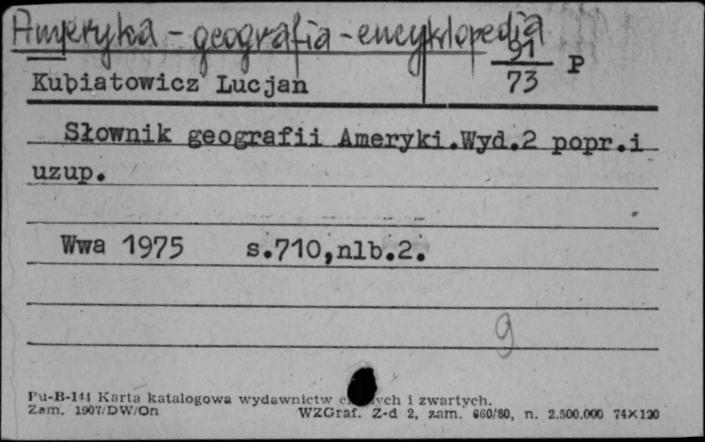 Ameryka - geografia - encyklopedia
91
73 P
Kubiatowicz Lucjan
Słownik geografii Ameryki.Wyd.2 popr.i
uzup.
Wwa 1975 s.710,nlb.2.
9
Pu-B-144 Karta katalogowa wydawnictw i zwartych.
Zam. 1907/DW/On WZGraf. Z-d 2, zam. 660/80, n. 2.500.000 74×120